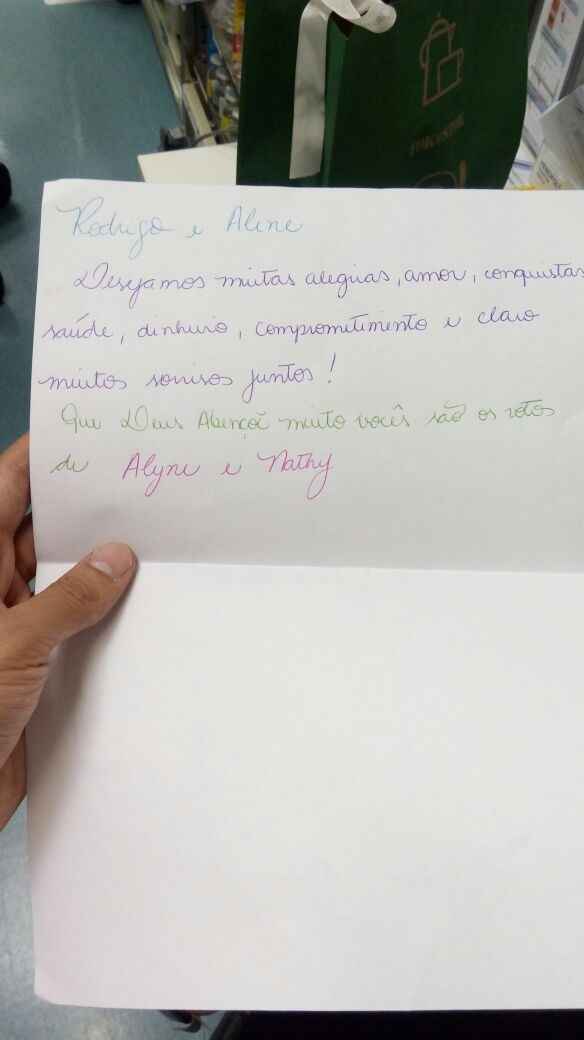 Rodrigo e Aline
Desejamos muitas alegrias, amor, conquistas
saúde, dinheiro, comprometimento e claro
muitos sorisos juntos!
Que Deus Abençoê muito vocês são os votos
de Alyne e Nathy